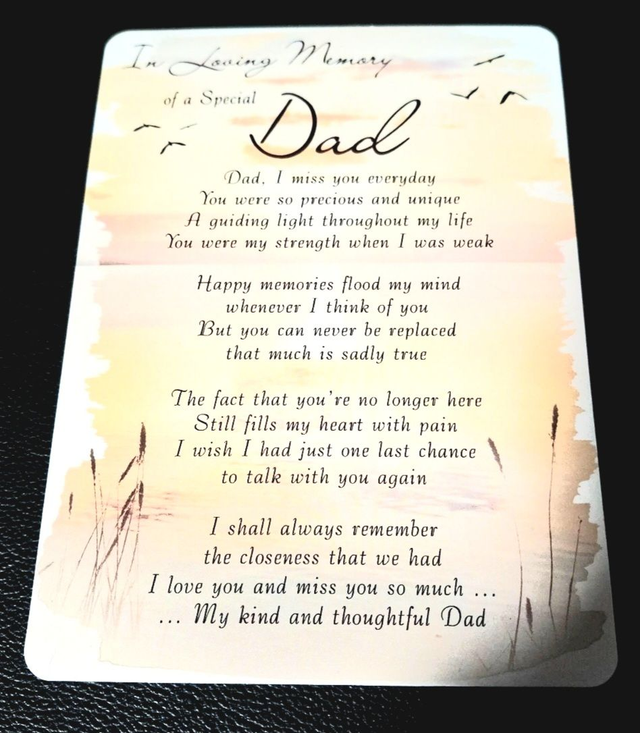 In Loving Memory
of a Special
Dad
Dad, I miss you everyday
You were so precious and unique
A guiding light throughout my life
You were my strength when I was weak
Happy memories flood my mind
whenever I think of you
But you can never be replaced
that much is sadly true
The fact that you're no longer here
Still fills my heart with pain
I wish I had just one last chance
to talk with you again
I shall always remember
the closeness that we had
I love you and miss you so much ...
... My kind and thoughtful Dad